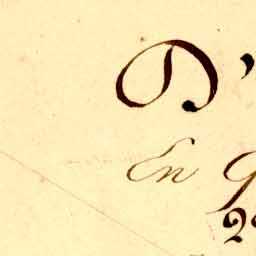 D'
En g
2